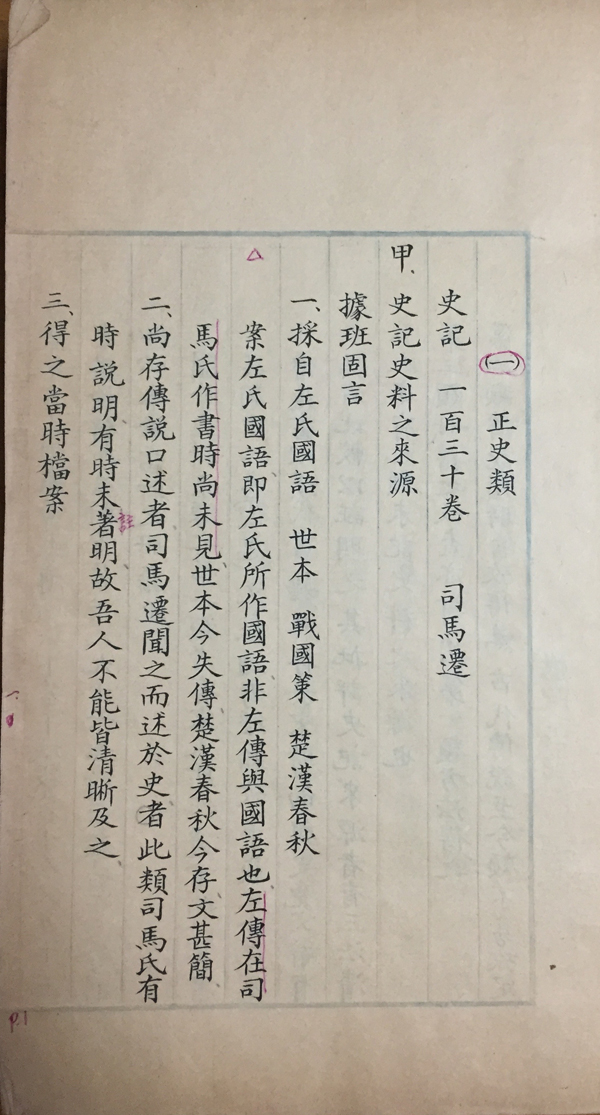 ㈠ 正史類
史記 一百三十卷 司馬遷
甲、史記史料之來源
據班固言
一、採自左氏國語 世本 戰國策 楚漢春秋
案左氏國語、即左氏所作國語、非左傳與國語也、左傳在司
馬氏作書時尚未見、世本今失傳、楚漢春秋今存、文甚簡
二、尚存傳說口述者、司馬遷聞之而述於史者、此類司馬氏有
時說明、有時未著明、故吾人不能皆清晰及之、
註
三、得之當時檔案
P.1